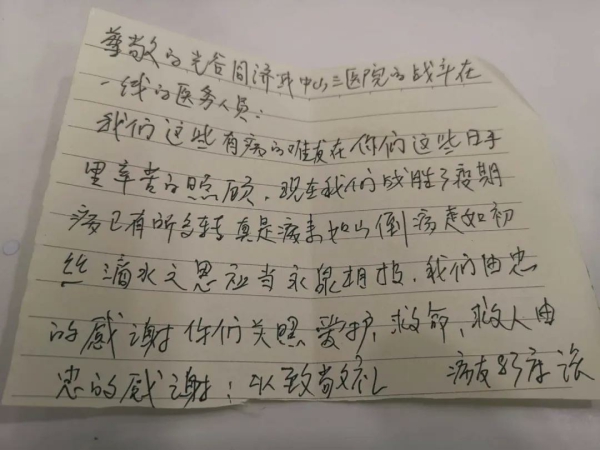 尊敬的光谷同济我中山三医院的战斗在
一线的医务人员:
我们这些有病的难友在你们这些日子
里辛苦的照顾,现在我们战胜了疫期
病已有所多转真是病来如山倒病走如初
丝滴水之恩祖当永泉相报,我们由忠
的感谢你们关照爱护,救命,救人由
忠的感谢!以致敬礼 病友85床